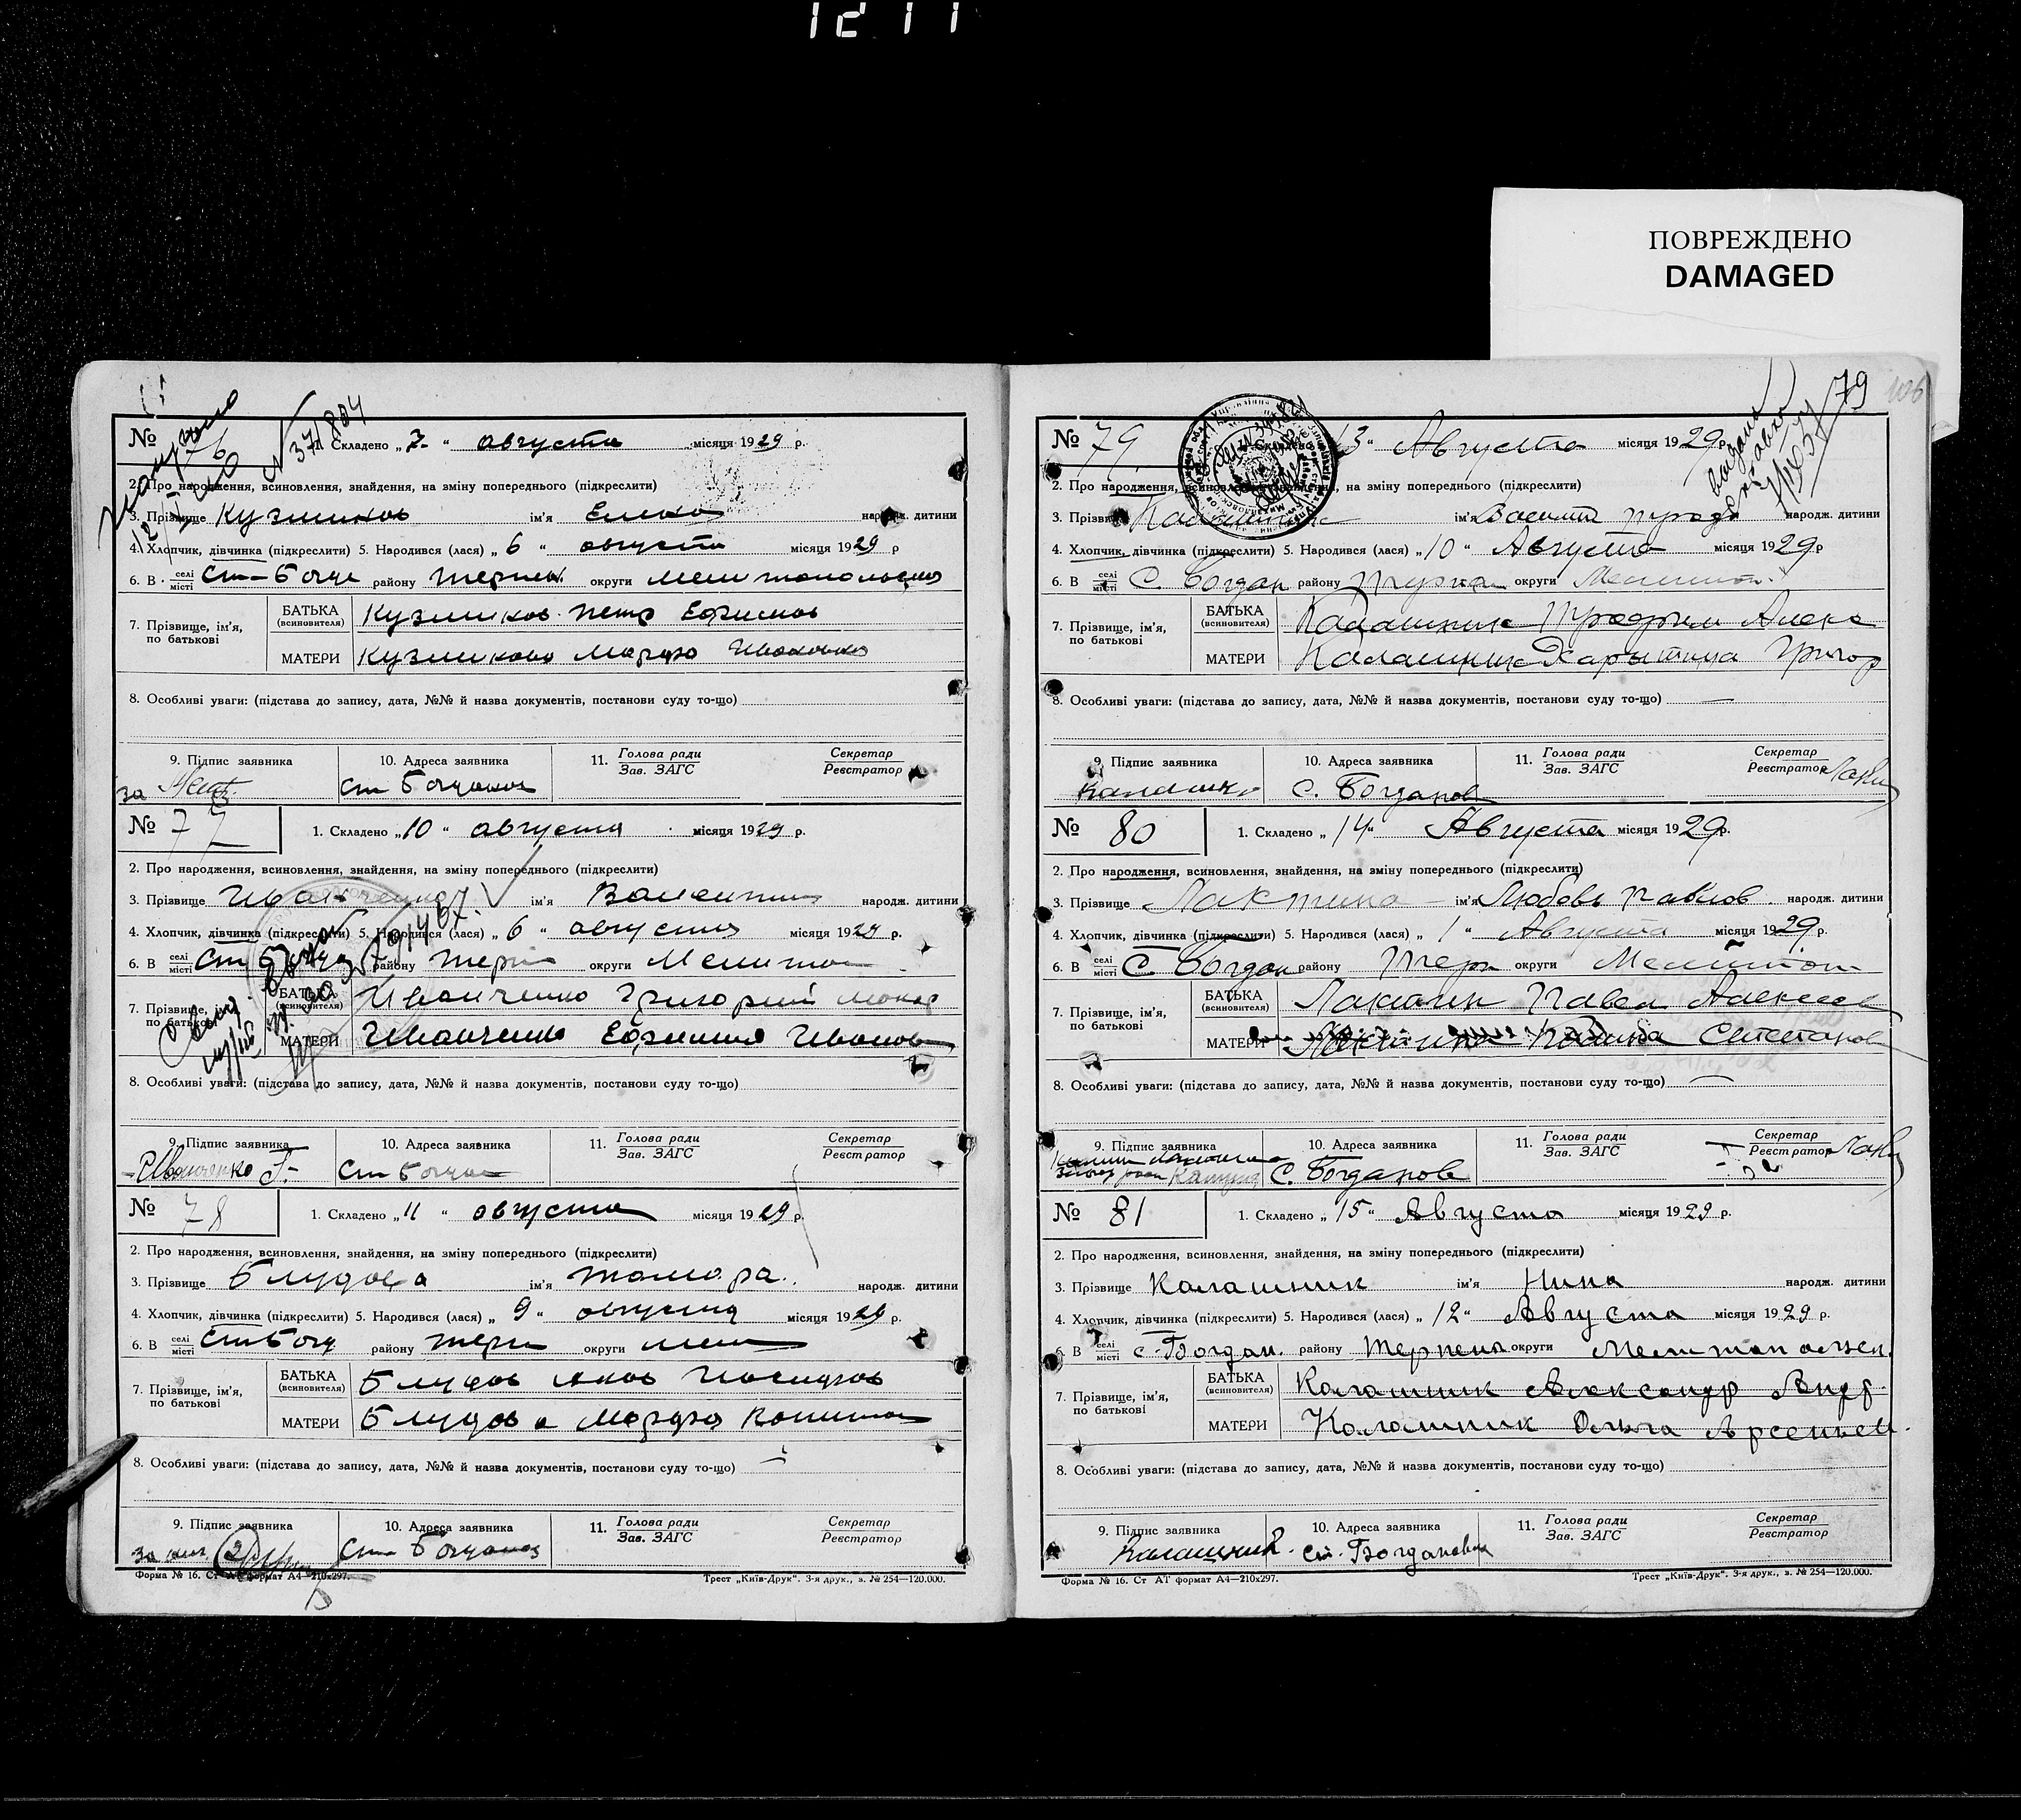 1211
ПОВРЕЖДЕНО
DAMAGED
№ 76 1. Складено „7“ августа місяця 1929 р.
№ 371804
2. Про народження, всиновлення, знайдення, на зміну попереднього (підкреслити)
3. Прізвище Кузминков ім'я народж. дитини
4. Хлопчик, дівчинка (підкреслити) 5. Народився (лася) „6“ августа місяця 1929 р
6. В селі місті Ст-Богд району Терпен округи Мелитопольской
7. Прізвище, ім'я, по батькові БАТЬКА (всиновителя) Кузминков Петр Ефимов
МАТЕРИ Кузминкова Марфа Ивановна
8. Особливі уваги: (підстава до запису, дата, №№ й назва документів, постанови суду то-що)
9. Підпис заявника 10. Адреса заявника 11. Голова ради Зав. ЗАГС Секретар Реєстратор
за ст Богданов
№ 77 1. Складено „10“ августа місяця 1929 р.
2. Про народження, всиновлення, знайдення, на зміну попереднього (підкреслити)
3. Прізвище Иванченко ім'я Валентин народж. дитини
4. Хлопчик, дівчинка (підкреслити) 5. Народився (лася) „6“ августа місяця 1929 р.
6. В селі місті Ст Богд району Терп округи Мелитоп
7. Прізвище, ім'я, по батькові БАТЬКА (всиновителя) Иванченко Григорий Макар
МАТЕРИ Иванченко Ефимия Иванов
8. Особливі уваги: (підстава до запису, дата, №№ й назва документів, постанови суду то-що)
9. Підпис заявника 10. Адреса заявника 11. Голова ради Зав. ЗАГС Секретар Реєстратор
Иванченко Г. Ст Богдан
№ 78 1. Складено „11“ августа місяця 1929 р.
2. Про народження, всиновлення, знайдення, на зміну попереднього (підкреслити)
3. Прізвище Блудова ім'я Тамара. народж. дитини
4. Хлопчик, дівчинка (підкреслити) 5. Народився (лася) „9“ августа місяця 1929 р.
6. В селі місті Ст Богд району Терп округи Мели
7. Прізвище, ім'я, по батькові БАТЬКА (всиновителя) Блудов Яков
МАТЕРИ Блудова Марфа
8. Особливі уваги: (підстава до запису, дата, №№ й назва документів, постанови суду то-що)
9. Підпис заявника 10. Адреса заявника 11. Голова ради Зав. ЗАГС Секретар Реєстратор
за Ст Богданов
Форма № 16. Ст АТ формат А4—210х297. Трест „Київ-Друк“. 3-я друк., з. № 254—120.000.
79 106
№ 79 Складено 13“ Августа місяця 1929 р.
2. Про народження, всиновлення, знайдення, на зміну попереднього (підкреслити)
3. Прізвище Калашник ім'я Василий народж. дитини
4. Хлопчик, дівчинка (підкреслити) 5. Народився (лася) „10“ Августа місяця 1929 р
6. В селі місті С. Богдан району округи Мелитоп.
7. Прізвище, ім'я, по батькові БАТЬКА (всиновителя) Калашник Трофим Алекс
МАТЕРИ Калашник Харытина Григор
8. Особливі уваги: (підстава до запису, дата, №№ й назва документів, постанови суду то-що) —
9. Підпис заявника 10. Адреса заявника 11. Голова ради Зав. ЗАГС Секретар Реєстратор
Калашник С. Богданов
№ 80 1. Складено „14“ Августа місяця 1929 р.
2. Про народження, всиновлення, знайдення, на зміну попереднього (підкреслити)
3. Прізвище Лактина ім'я Любовь Павлов. народж. дитини
4. Хлопчик, дівчинка (підкреслити) 5. Народився (лася) „1“ Августа місяця 1929 р.
6. В селі місті С Богдан району Терп округи Мелитоп
7. Прізвище, ім'я, по батькові БАТЬКА (всиновителя) Лактин Павел Алексеев
МАТЕРИ Степанов
8. Особливі уваги: (підстава до запису, дата, №№ й назва документів, постанови суду то-що) —
9. Підпис заявника 10. Адреса заявника 11. Голова ради Зав. ЗАГС Секретар Реєстратор
С. Богданов
№ 81 1. Складено „15“ Августа місяця 1929 р.
2. Про народження, всиновлення, знайдення, на зміну попереднього (підкреслити)
3. Прізвище Калашник ім'я Нина народж. дитини
4. Хлопчик, дівчинка (підкреслити) 5. Народився (лася) „12“ Августа місяця 1929 р.
6. В селі місті с. Богдан. району Терпен округи Мелитопольск.
7. Прізвище, ім'я, по батькові БАТЬКА (всиновителя) Калашник Александр
МАТЕРИ Калашник Ольга Арсеньев.
8. Особливі уваги: (підстава до запису, дата, №№ й назва документів, постанови суду то-що)
9. Підпис заявника 10. Адреса заявника 11. Голова ради Зав. ЗАГС Секретар Реєстратор
Калашник. ст. Богдановка
Форма № 16. Ст АТ формат А4—210х297. Трест „Київ-Друк“. 3-я друк., з. № 254—120.000.